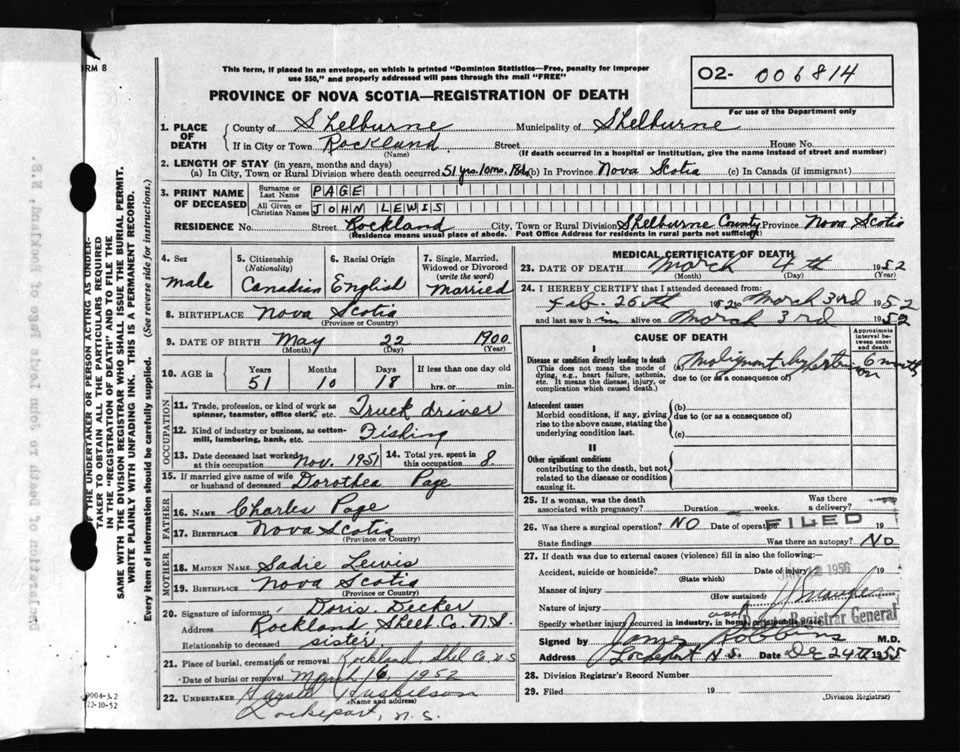 RM 8
This form, if placed in an envelope, on which is printed "Dominion Statistics—Free, penalty for improper
use $50," and properly addressed will pass through the mail "FREE"
PROVINCE OF NOVA SCOTIA—REGISTRATION OF DEATH
02- 006814
For use of the Department only
1. PLACE OF DEATH
County of Shelburne Municipality of Shelburne
If in City or Town Rockland Street House No.
(Name) (If death occurred in a hospital or institution, give the name instead of street and number)
2. LENGTH OF STAY (in years, months and days)
(a) In City, Town or Rural Division where death occurred 51 yrs. 10 mo. 18d. (b) In Province Nova Scotia (c) In Canada (if immigrant)
3. PRINT NAME OF DECEASED
Surname or Last Name PAGE
All Given or Christian Names JOHN LEWIS
RESIDENCE No. Street Rockland City, Town or Rural Division Shelburne County Province Nova Scotia
(Residence means usual place of abode. Post Office Address for residents in rural parts not sufficient)
4. Sex
male
5. Citizenship
(Nationality)
Canadian
6. Racial Origin
English
7. Single, Married,
Widowed or Divorced
(write the word)
Married
8. BIRTHPLACE Nova Scotia
(Province or Country)
9. DATE OF BIRTH May 22 1900
(Month) (Day) (Year)
10. AGE in
Years Months Days If less than one day old
51 10 18 hrs. or min.
OCCUPATION
11. Trade, profession, or kind of work as
spinner, teamster, office clerk, etc. Truck driver
12. Kind of industry or business, as cotton-
mill, lumbering, bank, etc. Fishing
13. Date deceased last worked
at this occupation Nov. 1951
14. Total yrs. spent in
this occupation 8.
15. If married give name of wife
or husband of deceased Dorothea Page
FATHER
16. NAME Charles Page
17. BIRTHPLACE Nova Scotia
(Province or Country)
MOTHER
18. MAIDEN NAME Sadie Lewis
19. BIRTHPLACE Nova Scotia
(Province or Country)
20. Signature of informant Doris Decker
Address Rockland Shel. Co. N.S.
Relationship to deceased sister
21. Place of burial, cremation or removal Rockland, Shel Co, N S
Date of burial or removal March 6, 1952
22. UNDERTAKER
(Name and address)
Lockeport, N.S.
MEDICAL CERTIFICATE OF DEATH
23. DATE OF DEATH March 4th 1952
(Month) (Day) (Year)
24. I HEREBY CERTIFY that I attended deceased from:
Feb. 26th 1952 to March 3rd 1952
and last saw him alive on March 3rd 1952
CAUSE OF DEATH
Approximate
interval be-
tween onset
and death
I
Disease or condition directly leading to death
(This does not mean the mode of
dying, e.g., heart failure, asthenia,
etc. It means the disease, injury, or
complication which caused death.)
(a) Malignant hypertension 6 months
due to (or as a consequence of)
Antecedent causes
Morbid conditions, if any, giving
rise to the above cause, stating the
underlying condition last.
(b)
due to (or as a consequence of)
(c)
II
Other significant conditions
contributing to the death, but not
related to the disease or condition
causing it.
25. If a woman, was the death
associated with pregnancy? Duration weeks. Was there
a delivery?
26. Was there a surgical operation? NO Date of operation 19
FILED
State findings Was there an autopsy? NO
27. If death was due to external causes (violence) fill in also the following:—
Accident, suicide or homicide? Date of injury 19
(State which)
1956
Manner of injury
(How sustained)
Nature of injury
Registrar General
Specify whether injury occurred in industry, in home,
Signed by James Robbins M.D.
Address Lockeport N.S. Date Dec 24th 1955
28. Division Registrar's Record Number
29. Filed 19
(Division Registrar)
OF THE UNDERTAKER OR PERSON ACTING AS UNDER-
TAKER TO OBTAIN ALL THE PARTICULARS REQUIRED
IN THE "REGISTRATION OF DEATH" AND TO FILE THE
SAME WITH THE DIVISION REGISTRAR WHO SHALL ISSUE THE BURIAL PERMIT.
WRITE PLAINLY WITH UNFADING INK. THIS IS A PERMANENT RECORD.
Every item of information should be carefully supplied. (See reverse side for instructions.)
Declaration of Death re John Lewis Page of Rockland, N.S.
22-10-52